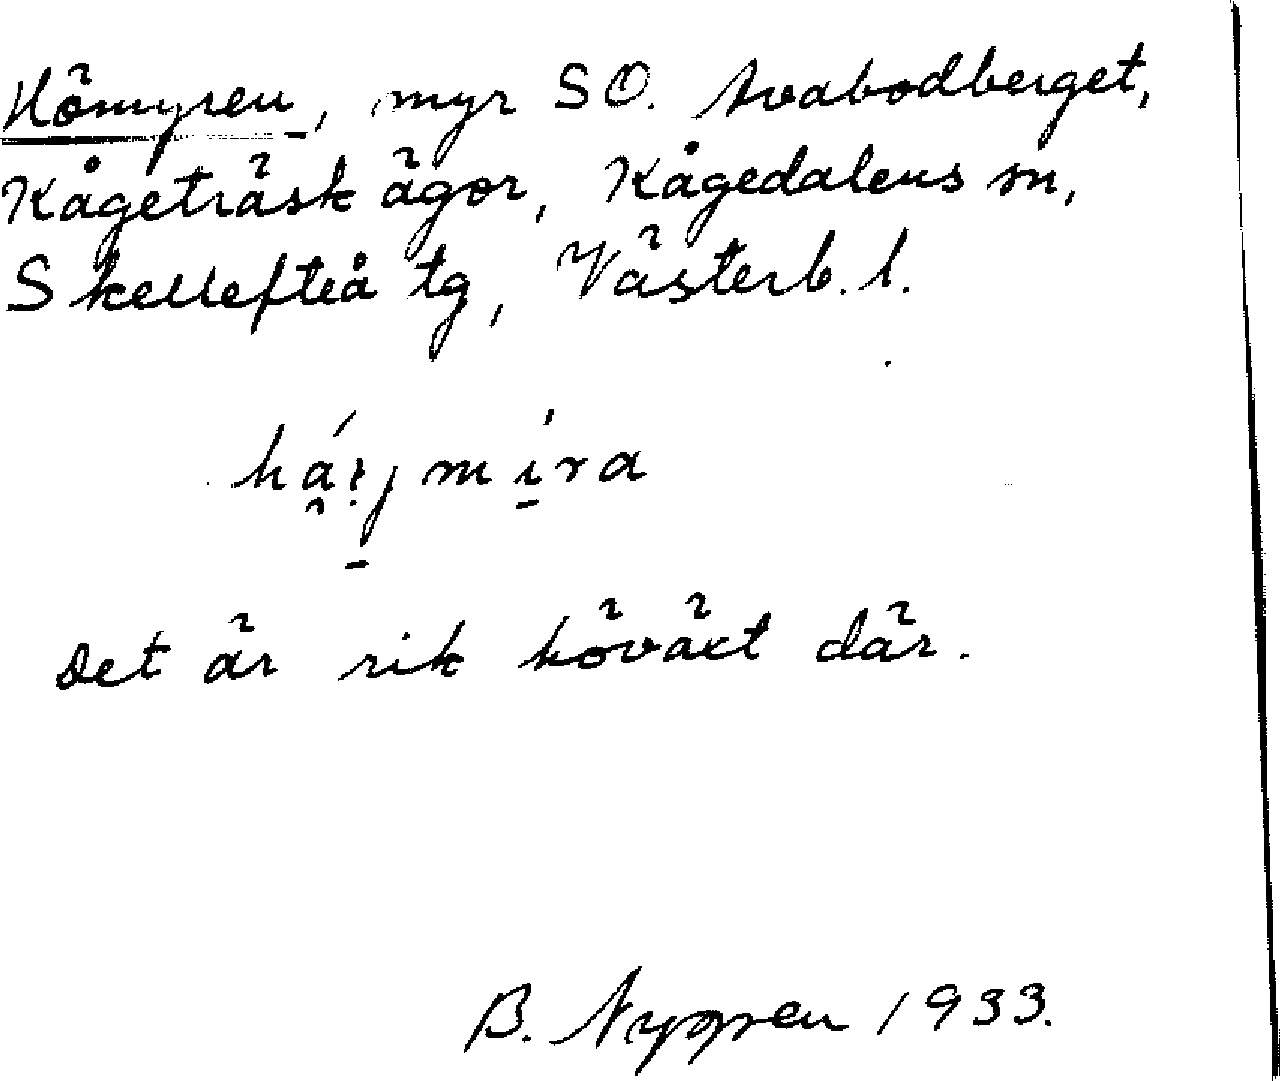 Hömyren, myr SO. Avabodberget,
Kågeträsk ägor, Kågedalens sn,
Skellefteå tg, Västerb. l.
Det är rik höväxt där.
B. Nygren 1933.